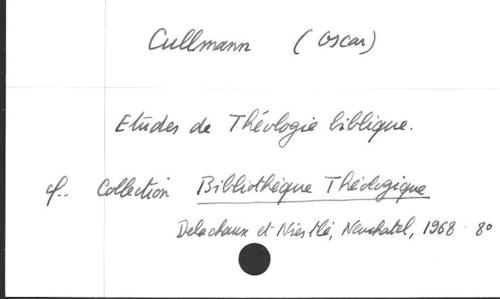 Cullmann (Oscar)
Etudes de Théologie biblique.
cf.. Collection Bibliothèque Théologique
Delachaux et Niestlé, Neuchatel, 1968. 8°